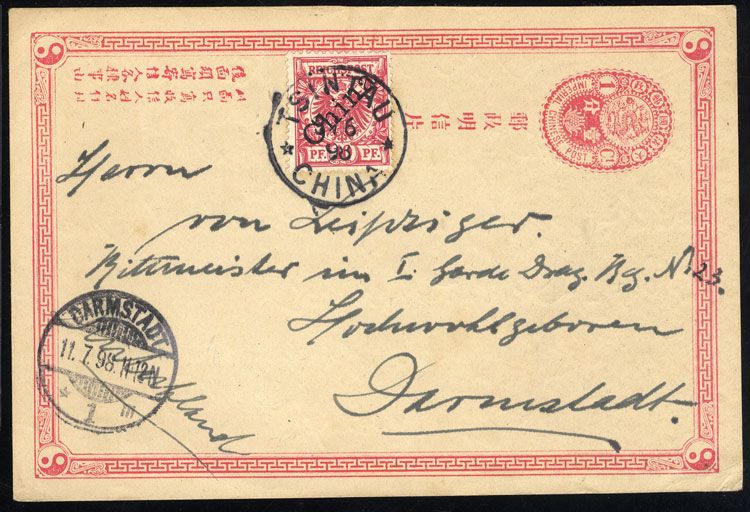 REICHSPOST
China
10 PF 10 PF.
TSINTAU
98
CHINA
郵政明信片
IMPERIAL CHINESE POST
1
此面只寫收信人姓名住址
後面
Herrn
von Leipziger.
Rittmeister im I. Garde Drag. Reg. Nº 23.
Hochwohlgeboren
Darmstadt.
DARMSTADT
11. 7. 98. 11-12N.
* 1 m